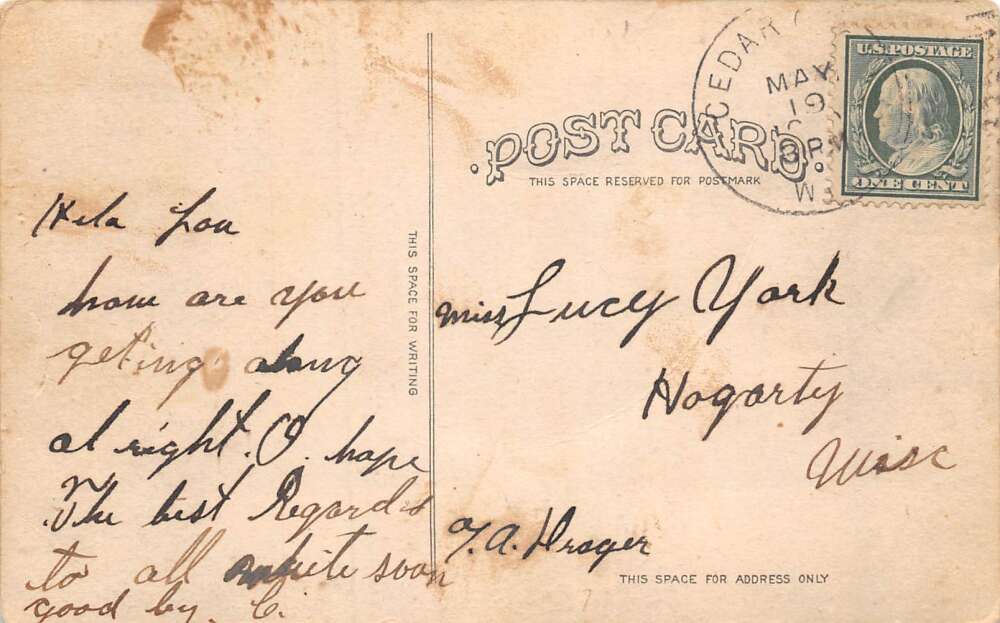 Hela Lou
how are you
geting along
al right. O. hope
The best Regards
to all white soon
good by. C.
THIS SPACE FOR WRITING
POST CARD.
THIS SPACE RESERVED FOR POSTMARK
CEDAR
MAY
19
3 PM
W
U.S. POSTAGE
ONE CENT
Miss Lucy York
Hogarty
Wisc
A. Drager
THIS SPACE FOR ADDRESS ONLY